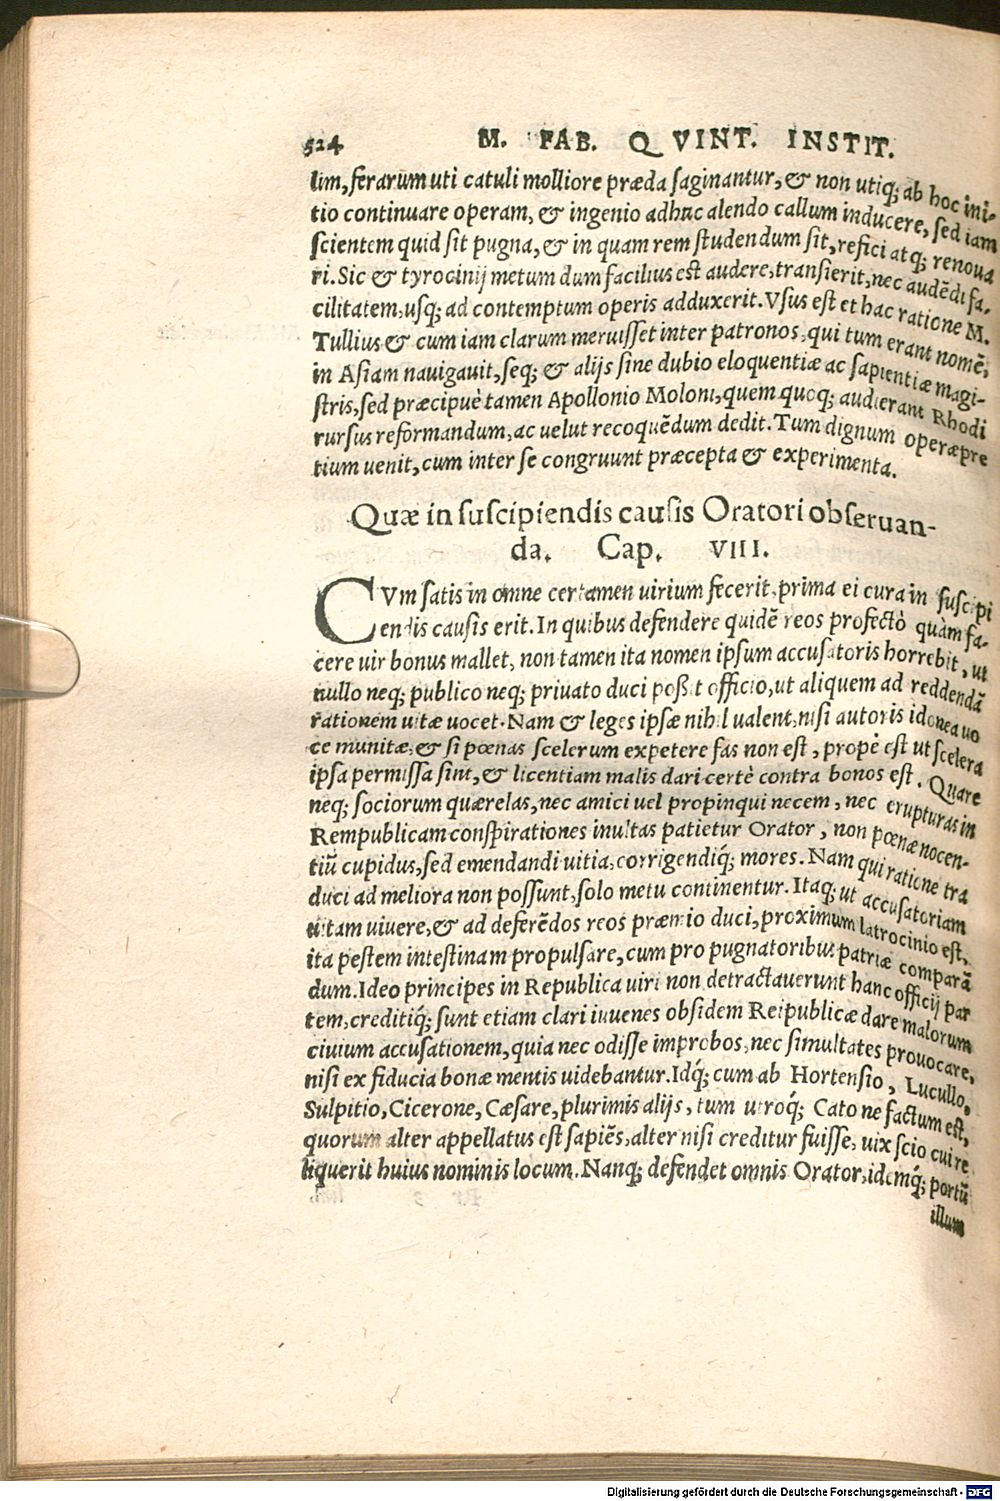 524 M. FAB. QVINT. INSTIT.
lim, ferarum uti catuli molliore præda saginantur, & non utiq; ab hoc ini-
tio continuare operam, & ingenio adhuc alendo callum inducere, sed iam
scientem quid sit pugna, & in quam rem studendum sit, refici atq; renoua
ri. Sic & tyrocinij metum dum facilius est audere, transierit, nec audẽdi fa-
cilitatem, usq; ad contemptum operis adduxerit. Vsus est et hac ratione M.
Tullius & cum iam clarum meruisset inter patronos, qui tum erant nomẽ,
in Asiam nauigauit, seq; & alijs sine dubio eloquentiæ ac sapientiæ magi-
stris, sed præcipuè tamen Apollonio Moloni, quem quoq; audierant Rhodi
rursus reformandum, ac uelut recoquẽdum dedit. Tum dignum operæpre
tium uenit, cum inter se congruunt præcepta & experimenta.
Quæ in suscipiendis causis Oratori obseruan-
da. Cap. VIII.
CVm satis in omne certamen uirium fecerit, prima ei cura in suscipi
endis causis erit. In quibus defendere quidẽ reos profectò quàm fa-
cere uir bonus mallet, non tamen ita nomen ipsum accusatoris horrebit, ut
nullo neq; publico neq; priuato duci possit officio, ut aliquem ad reddendã
rationem uitæ uocet. Nam & leges ipsæ nihil ualent, nisi autoris idonea uo
ce munitæ, & si pœnas scelerum expetere fas non est, propè est ut scelera
ipsa permissa sint, & licentiam malis dari certè contra bonos est. Quare
neq; sociorum quærelas, nec amici uel propinqui necem, nec erupturas in
Rempublicam conspirationes inultas patietur Orator, non pœnæ nocen-
tiũ cupidus, sed emendandi uitia, corrigendiq́; mores. Nam qui ratione tra
duci ad meliora non possunt, solo metu continentur. Itaq; ut accusatoriam
uitam uiuere, & ad deferẽdos reos præmio duci, proximum latrocinio est,
ita pestem intestinam propulsare, cum pro pugnatoribus patriæ comparã
dum. Ideo principes in Republica uiri non detractauerunt hanc officij par
tem, creditiq́; sunt etiam clari iuuenes obsidem Reipublicæ dare malorum
ciuium accusationem, quia nec odisse improbos, nec simultates prouocare,
nisi ex fiducia bonæ mentis uidebantur. Idq́; cum ab Hortensio, Lucullo,
Sulpitio, Cicerone, Cæsare, plurimis alijs, tum utroq́; Cato ne factum est,
quorum alter appellatus est sapiẽs, alter nisi creditur fuisse, uix scio cui re
liquerit huius nominis locum. Nanq; defendet omnis Orator, idemq́; portũ
illum
Digitalisierung gefördert durch die Deutsche Forschungsgemeinschaft - DFG